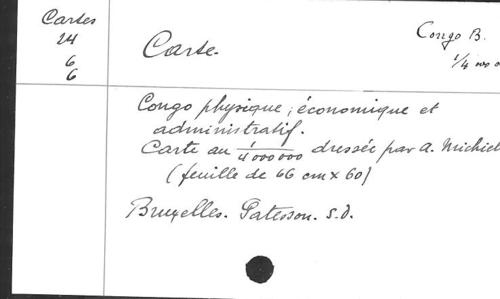 Cartes
24
6
6
Carte.
Congo B.
1/4 000 0
Congo physique, économique et
administratif.
Carte au 1/4000000 dressée par A. Michiel
(feuille de 66 cm x 60)
Bruxelles. Patesson. s.d.